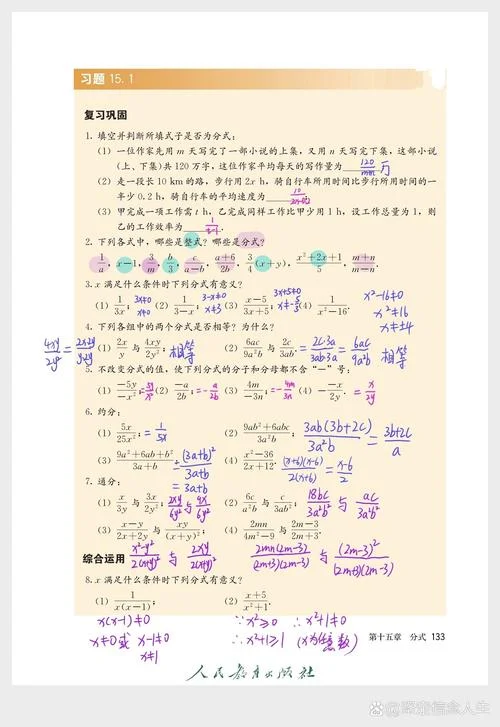 习题 15.1
复习巩固
1. 填空并判断所填式子是否为分式:
(1) 一位作家先用 m 天写完了一部小说的上集，又用 n 天写完下集，这部小说
(上、下集)共 120 万字，这位作家平均每天的写作量为 120/(m+n) 万
(2) 走一段长 10 km 的路，步行用 2x h，骑自行车所用时间比步行所用时间的一
半少 0.2 h，骑自行车的平均速度为
(3) 甲完成一项工作需 t h，乙完成同样工作比甲少用 1 h，设工作总量为 1，则
乙的工作效率为 1/(t-1)
2. 下列各式中，哪些是整式？哪些是分式？
1/a, x-1, 3/m, b/3, c/(a-b), (a+6)/2b, 3/4(x+y), (x²+2x+1)/5, (m+n)/(m-n).
3. x 满足什么条件时下列分式有意义？
(1) 1/3x; 3x≠0 x≠0 (2) 1/(3-x); 3-x≠0 x≠3 (3) (x-5)/(3x+5); 3x+5≠0 x≠-5/3 (4) 1/(x²-16). x²-16≠0
x²≠16
x≠±4
4. 下列各组中的两个分式是否相等？为什么？
4xy/2y² = 2x·2y/y·2y (1) 2x/y 与 4xy/2y²; 相等 (2) 6ac/9a²b 与 2c/3ab. = 2c·3a/3ab·3a = 6ac/9a²b 相等
5. 不改变分式的值，使下列分式的分子和分母都不含“－”号:
(1) -5y/-x²; = 5y/x² (2) -a/2b; = -a/2b (3) 4m/-3n; = -4m/3n (4) -(-x/2y). = x/2y
6. 约分:
(1) 5x/25x²; = 1/5x (2) (9ab²+6abc)/3a²b; 3ab(3b+2c)/3a²b = (3b+2c)/a
(3) (9a²+6ab+b²)/(3a+b); = (3a+b)²/(3a+b) (4) (x²-36)/(2x+12). (x+6)(x-6)/2(x+6) = (x-6)/2
= 3a+b
7. 通分:
(1) x/3y 与 3x/2y²; 2xy/6y² 与 9x/6y² (2) 6c/a²b 与 c/3ab²; 18bc/3a²b² 与 ac/3a²b²
(3) (x-y)/(2x+2y) 与 xy/(x+y)²; (4) 2mn/(4m²-9) 与 (2m-3)/(2m+3).
综合运用 (x²-y²)/2(x+y)² 与 2xy/2(x+y)² 2mn(2m-3)/(2m+3)(2m-3) 与 (2m-3)²/(2m+3)(2m-3)
8. x 满足什么条件时下列分式有意义？
(1) 1/x(x-1); (2) (x+5)/(x²+1).
x(x-1)≠0 ∵x²≥0 ∴x²+1≠0
x≠0或 x-1≠0 ∴x²+1≥1 (x为任意数)
x≠1
第十五章 分式 133
人民教育出版社